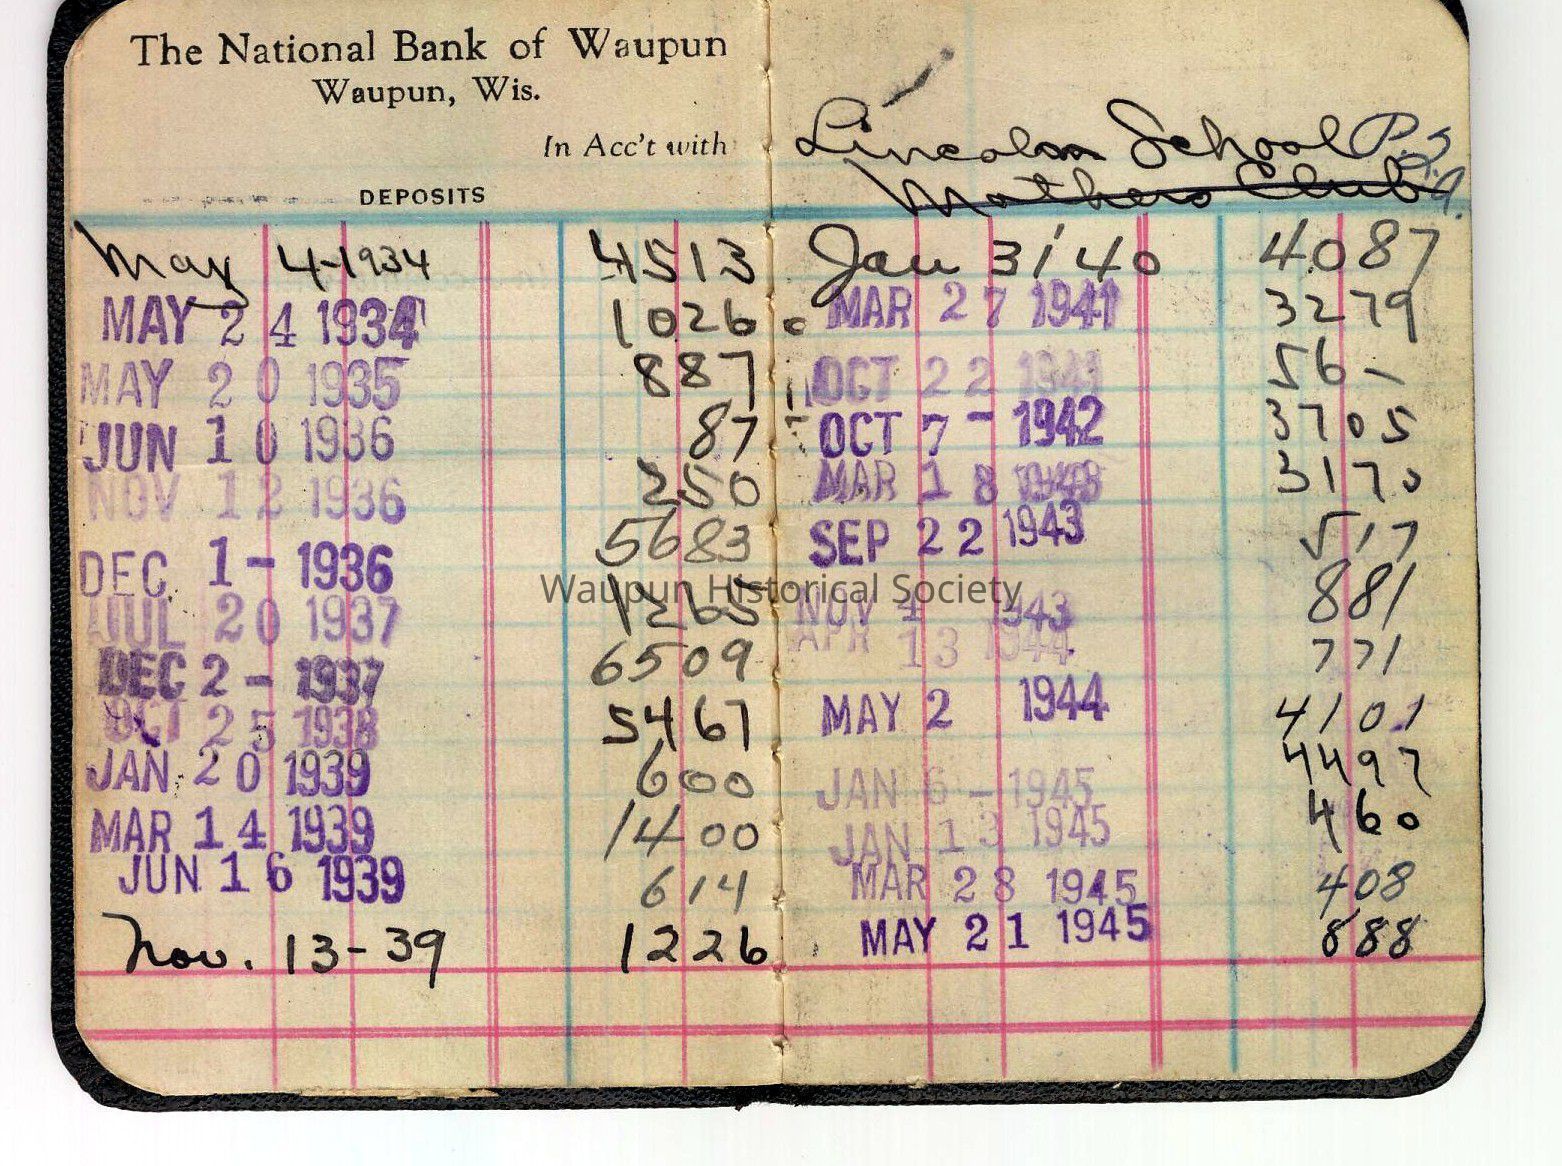 The National Bank of Waupun
Waupun, Wis.
In Acc't with
DEPOSITS
May 4-1934 4513
MAY 24 1934 1026
MAY 20 1935 887
JUN 10 1936 87
NOV 12 1936 250
DEC. 1- 1936 5683
JUL 20 1937 1265
DEC 2- 1937 6509
OCT 25 1938 5467
JAN 20 1939 600
MAR 14 1939 1400
JUN 16 1939 614
Nov. 13-39 1226
Lincoln School P.S.
Mothers Club
Jan 31 40 4087
MAR 27 1941 3279
OCT 22 1941 56-
OCT 7- 1942 3705
MAR 18 3170
SEP 22 1943 517
NOV 4 1943 881
APR 13 1944 771
MAY 2 1944 4101
JAN 6- 1945 4497
JAN 13 1945 460
MAR 28 1945 408
MAY 21 1945 888
Waupun Historical Society